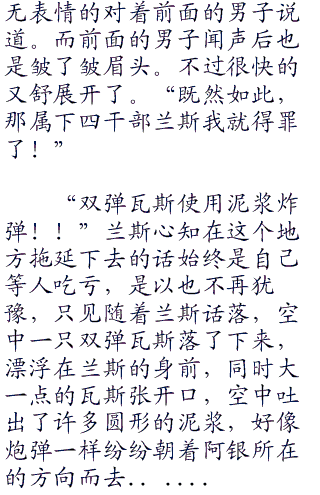 无表情的对着前面的男子说
道。而前面的男子闻声后也
是皱了皱眉头。不过很快的
又舒展开了。“既然如此，
那属下四干部兰斯我就得罪
了！”
“双弹瓦斯使用泥浆炸
弹！！”兰斯心知在这个地
方拖延下去的话始终是自己
等人吃亏，是以也不再犹
豫，只见随着兰斯话落，空
中一只双弹瓦斯落了下来，
漂浮在兰斯的身前，同时大
一点的瓦斯张开口，空中吐
出了许多圆形的泥浆，好像
炮弹一样纷纷朝着阿银所在
的方向而去．．．．．．